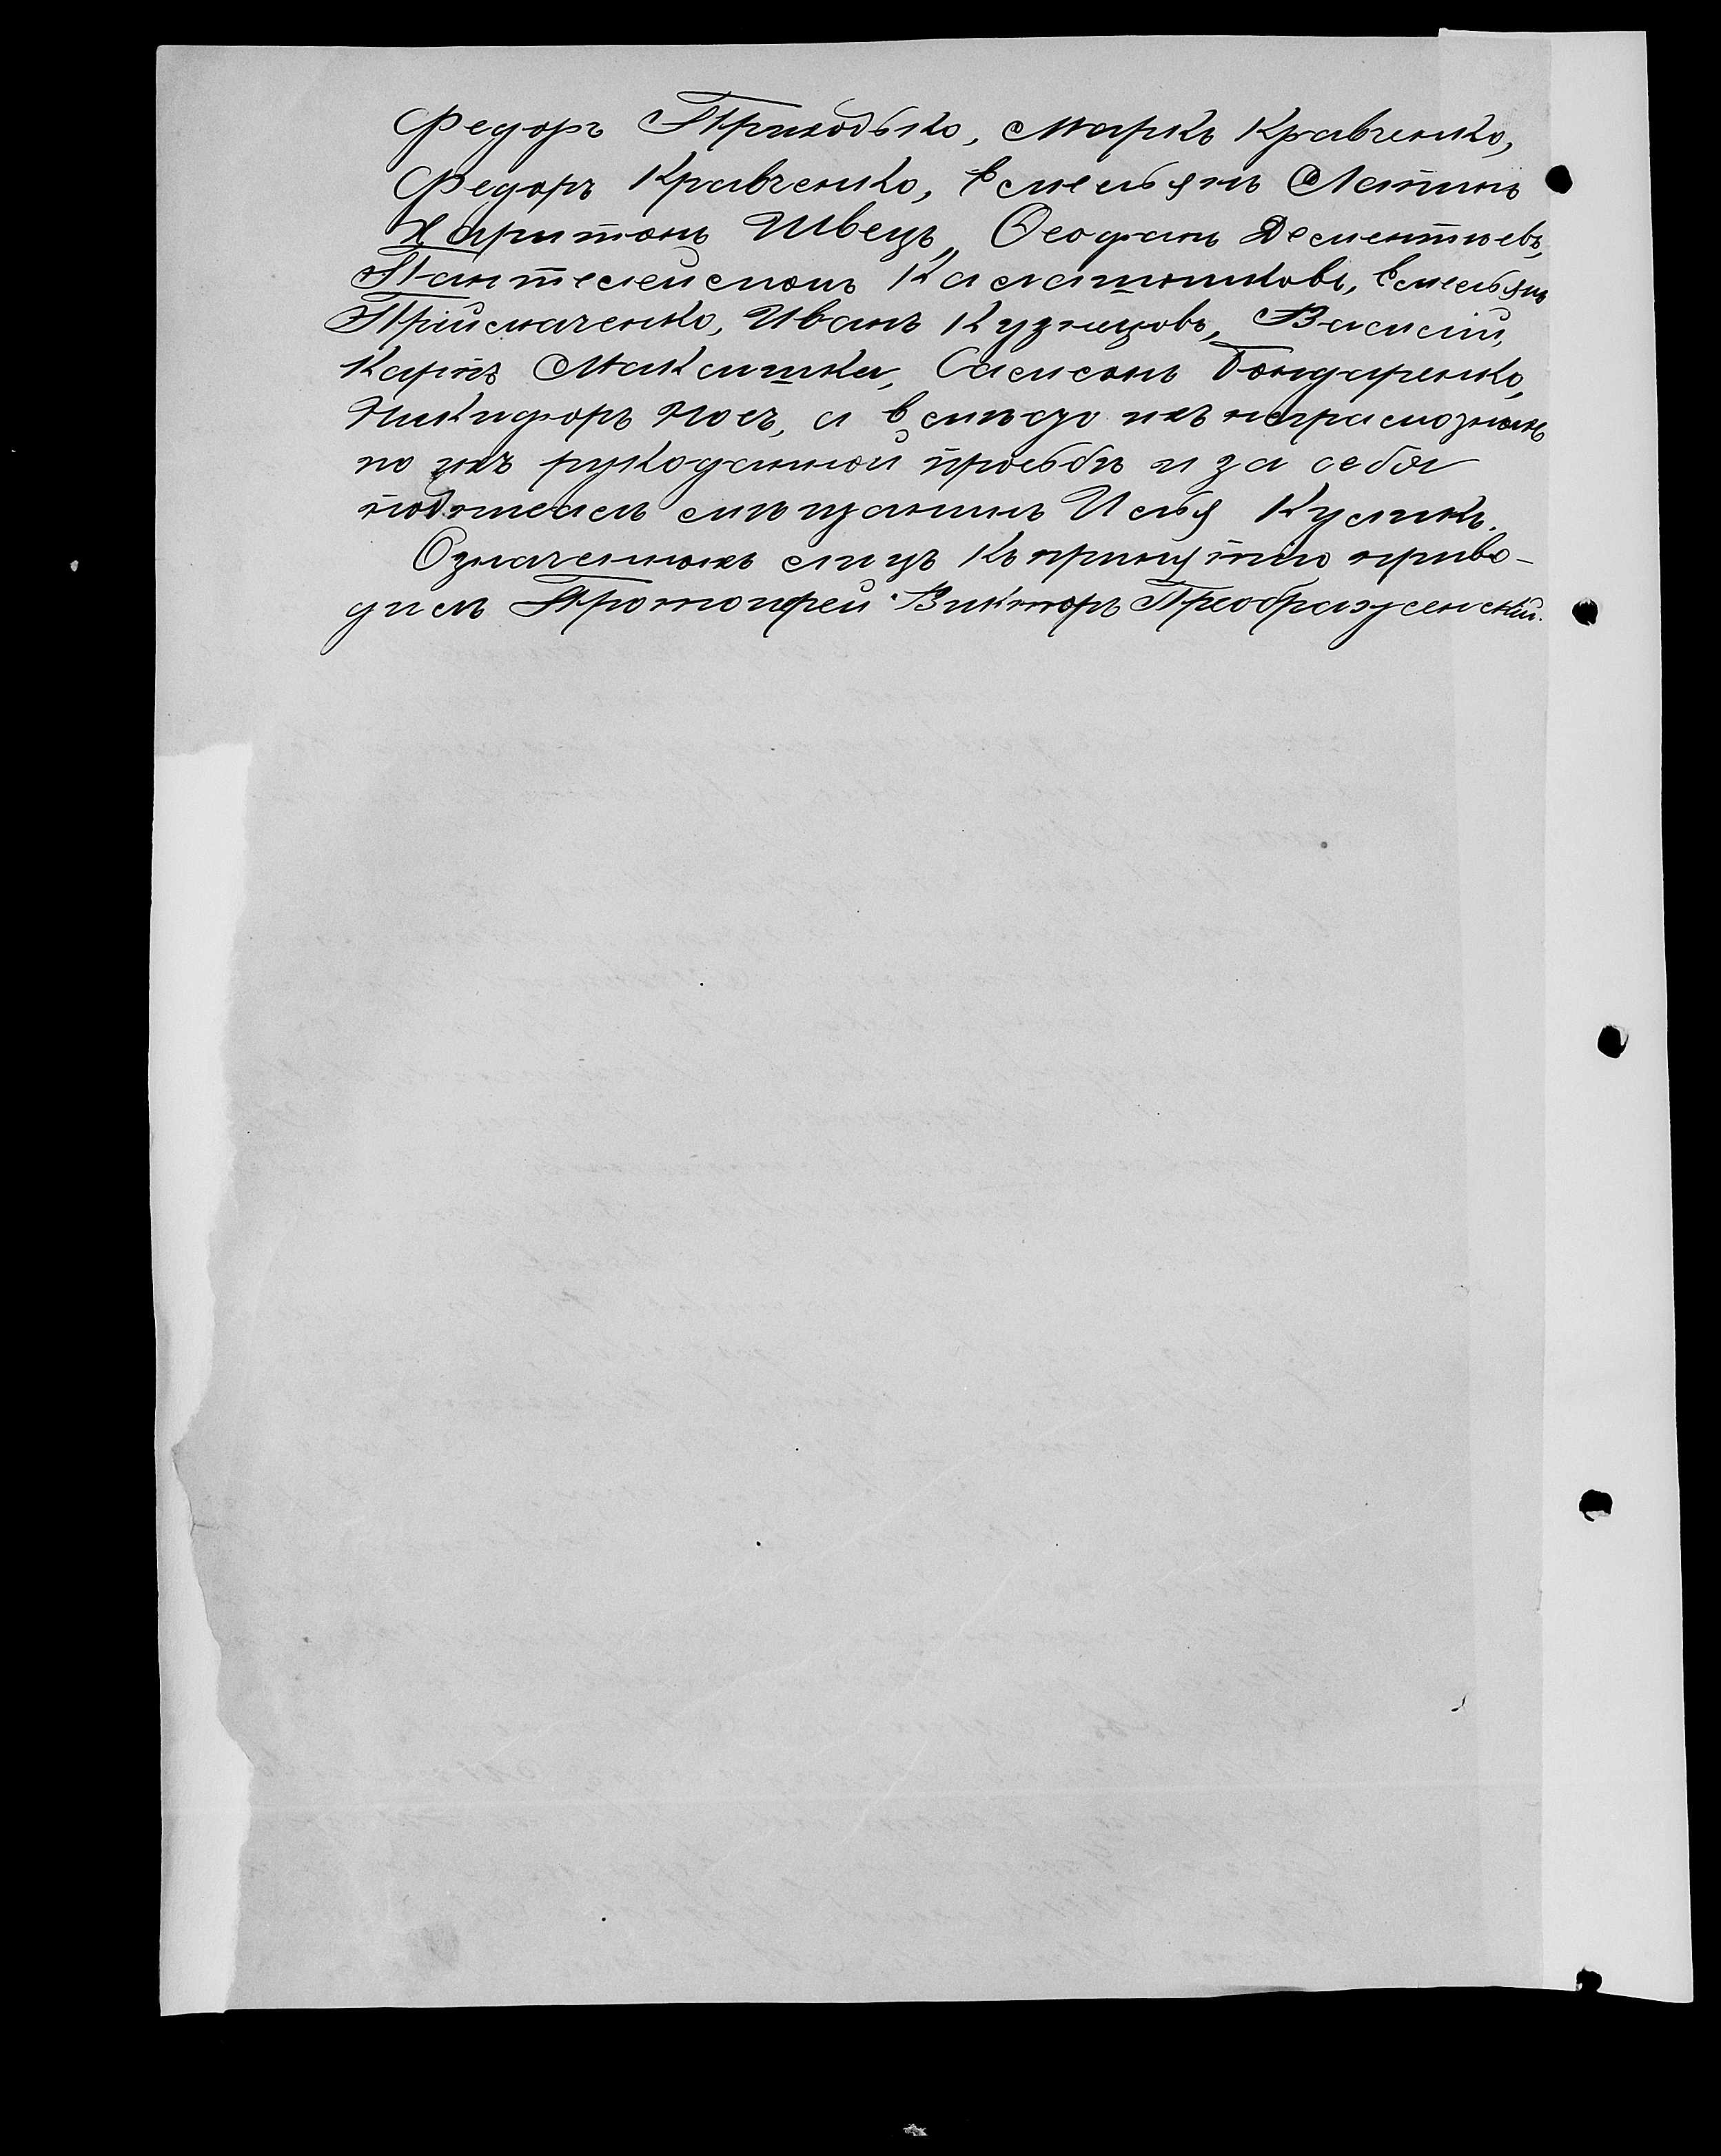 Федоръ Приходько, Маркъ Кравченко,
Федоръ Кравченко, Емельянъ Летинъ
Харитонъ Швецъ, Ѳеофанъ Дементіевъ,
Пантелеймонъ Калашниковъ, Емельянъ
Приймаченко, Иванъ Кузнецовъ, Василій,
Карпъ Макаишка, Самсонъ Бондаренко,
Никифоръ Носъ, а вмѣсто ихъ неграмотныхъ
по ихъ рукоданной просьбѣ и за себя
подписалъ мѣщанинъ Илья Куликъ.
Означенныхъ лицъ къ принятію приво-
дилъ Протоіерей Викторъ Преображенскій.